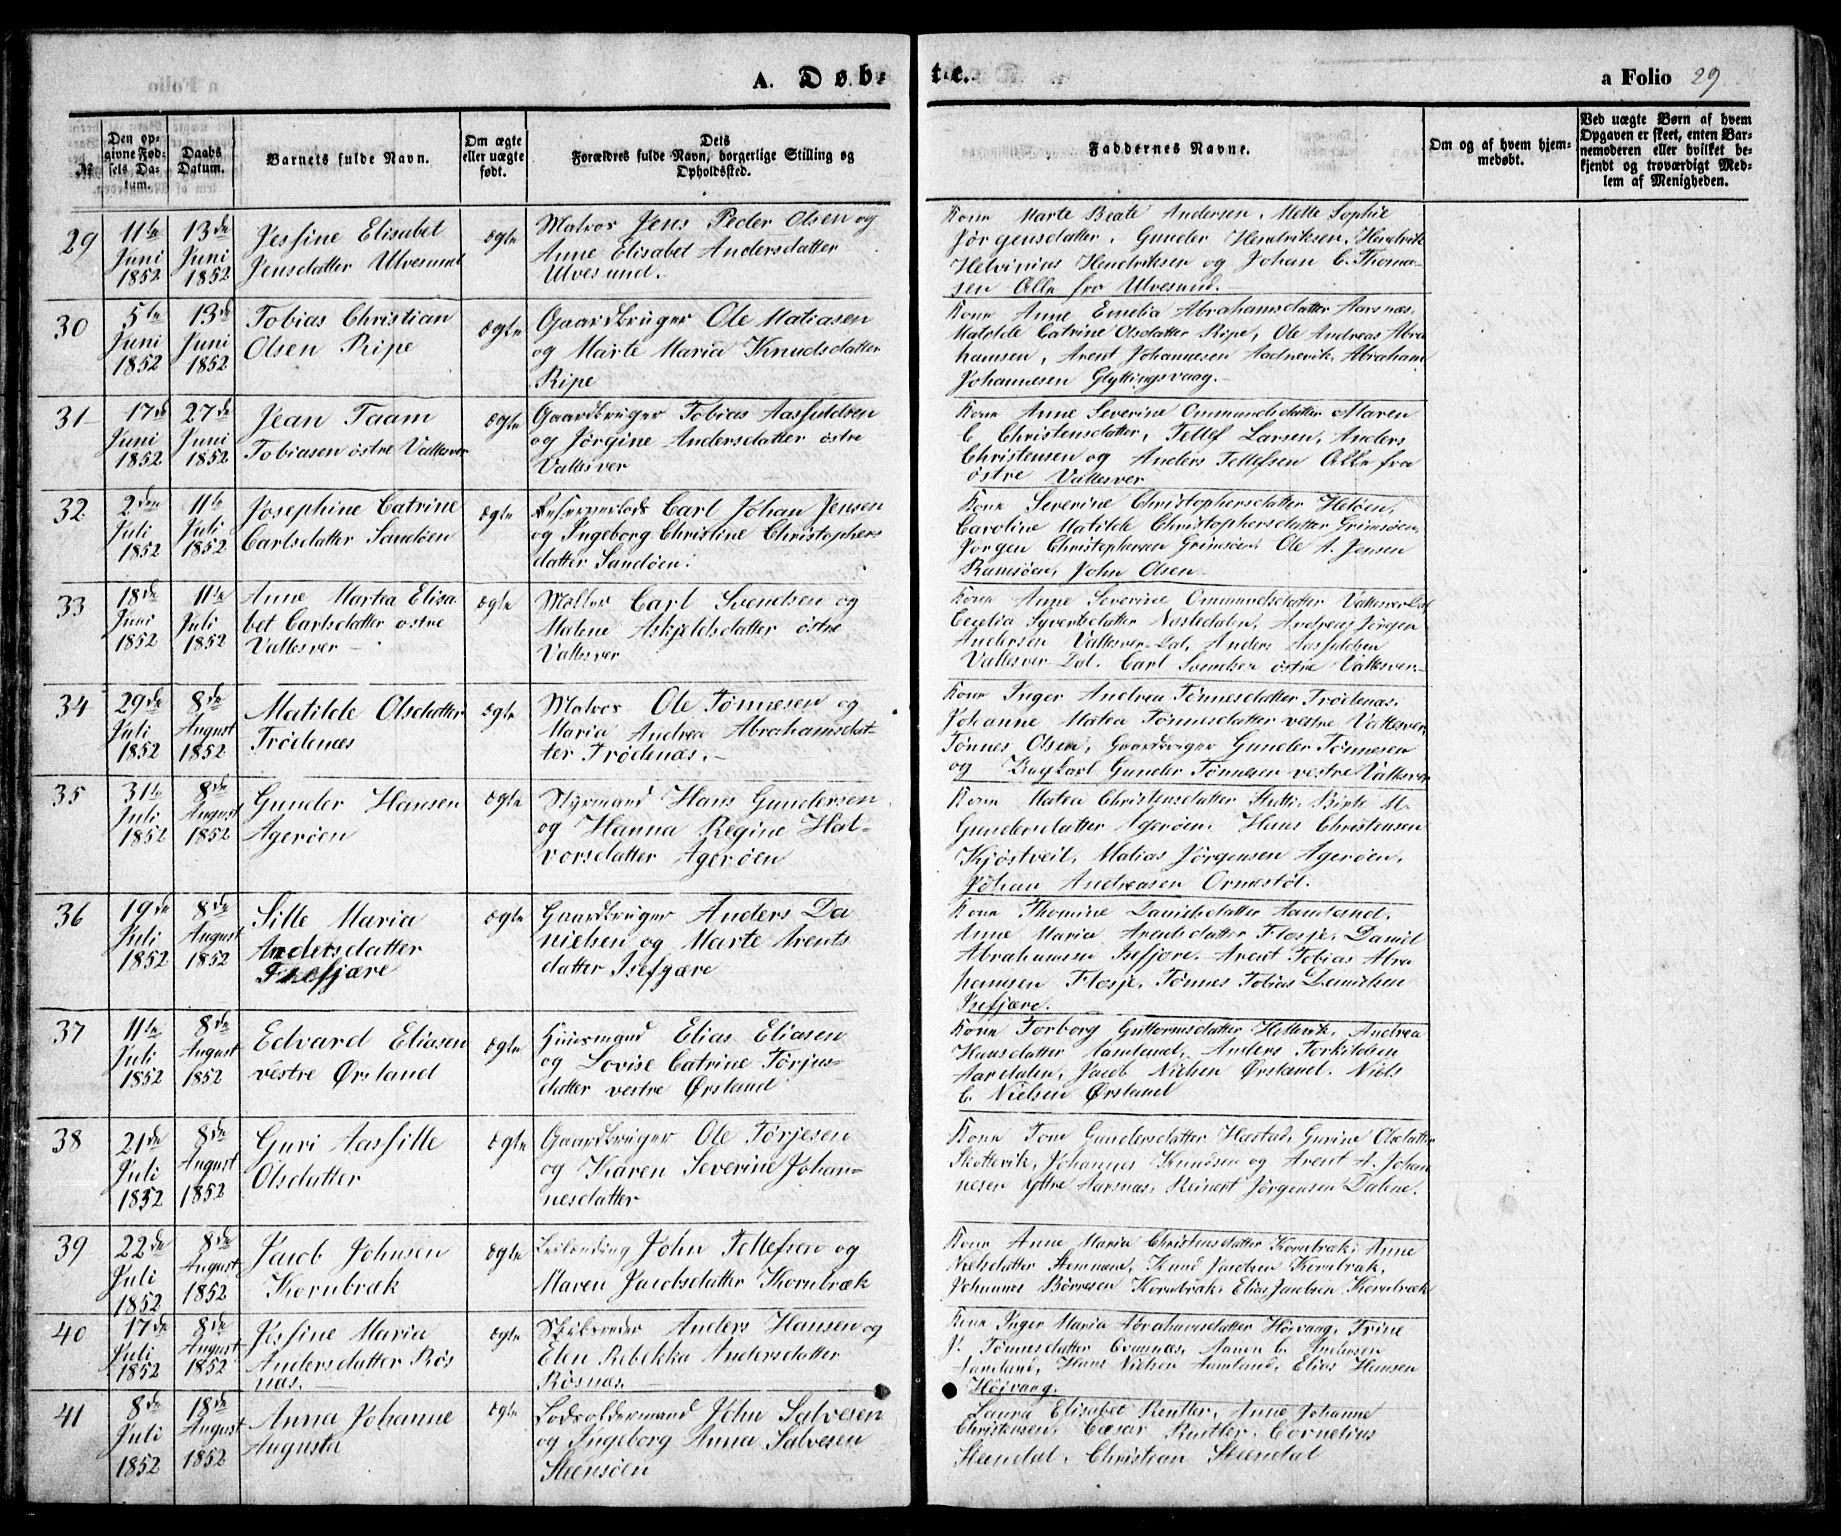 A. Døb-
te.
a Folio 29
№
Den op-
givne Fød-
sels Da-
tum.
Daabs
Datum.
Barnets fulde Navn.
Om ægte
eller uægte
født.
Dets
Forældres fulde Navn, borgerlige Stilling og
Opholdssted.
Faddernes Navne.
Om og af hvem hjem-
medøbt.
Ved uægte Børn af hvem
Opgaven er skeet, enten Bar-
nemoderen eller hvilket be-
kjendt og troværdigt Med-
lem af Menigheden.
29
11te
Juni
1852
13de
Juni
1852
Jesfine Elisabet
Jensdatter Ulvesund
ægte
Matros Jens Peder Olsen og
Anne Elisabet Andersdatter
Ulvesund.
Kone Marte Beate Andersen, Mette Sophie
Jørgensdatter, Gunder Hendriksen, Hendrik
Helvinius Hendriksen og Johan C. Thoma-
sen Alle fra Ulvesund.
30
5te
Juni
1852
13de
Juni
1852
Tobias Christian
Olsen Ripe
ægte
Gaardbruger Ole Matiasen
og Marte Maria Knudsdatter
Ripe
Kone Anne Emelia Abrahamsdatter Aarsnæs,
Matilde Catrine Olsdatter Ripe, Ole Andreas Abra
hamsen, Arent Johannesen Aadnevik, Abraham
Johannesen Glyttingsvaag.
31
17de
Juni
1852
27de
Juni
1852
Jean Taam
Tobiasen østre Vallesver
ægte
Gaardbruger Tobias Aasfuldsen
og Jørgine Andersdatter østre
Vallesver
Kone Anne Severine Ommundsdatter Maren
C Christensdatter, Tellef Larsen, Anders
Christensen og Anders Tellefsen Alle fra
østre Vallesver
32
2den
Juli
1852
11te
Juli
1852
Josephine Catrine
Carlsdatter Sandøen
ægte
Reserverlods Carl Johan Jensen
og Ingeborg Christine Christophers
datter Sandøen.
Kone Severine Christophersdatter Heløen,
Caroline Matilde Christophersdatter Grimsøen,
Jørgen Christophersen Grimsøen, Ole A. Jensen
Ramsøen, John Olsen
33
18de
Juni
1852
11te
Juli
1852
Anne Martea Elisa
bet Carlsdatter østre
Vallesver
ægte
Møller Carl Svendsen og
Malene Askjeldsdatter østre
Vallesver
Kone Anne Severine Ommundsdatter Vallesver Dal
Cecelia Syvertsdatter Nostedalen, Andreas Jørgen
Andersen Vallesver Dal, Anders Aasfuldsen
Vallesver Dal. Carl Svendsen østre Vallesver
34
29de
Juli
1852
8de
August
1852
Matilde Olsdatter
Trødenæs
ægte
Matros Ole Tønnesen og
Maria Andrea Abrahamsdat-
ter Trødenæs.
Kone Inger Andrea Tønnesdatter Trødenæs,
Johanne Matea Tønnesdatter vestre Vallesver
Tønnes Olsen, Gaardbruger Gunder Tønnesen
og Ungkarl Gunder Tønnesen vestre Vallesver
35
31te
Juli
1852
8de
August
1852
Gunder Hansen
Agerøen
ægte
Styrmand Hans Gundersen
og Hanna Regine Hal-
vorsdatter Agerøen
Kone Matea Christensdatter Birte M.
Gundersdatter Agerøen, Hans Christensen
Kjøstveit, Matias Jørgensen Agerøen,
Johan Andreasen Ormestøl.
36
19de
Juli
1852
8de
August
1852
Sille Maria
Andersdatter
Isefjære
ægte
Gaardbruger Anders Da
nielsen og Marte Arents
datter Isefjære
Kone Thomine Danielsdatter Aamlend,
Anne Maria Arentsdatter Flosje, Daniel
Abrahamsen Isefjære, Arent Tobias Abra
hamsen Flosje, Tønnes Tobias Danielsen
Isefjære.
37
11te
Juli
1852
8de
August
1852
Edvard Eliasen
vestre Ørsland
ægte
Huusmand Elias Eliasen
og Lovise Catrine Tørjus-
datter vestre Ørsland
Kone Torborg Guttormsdatter Hellevik, Andrea
Hansdatter Aamland, Anders Torkildsen
Aardalen, Jacob Nielsen Ørsland. Niels
C. Nielsen Ørsland
38
21de
Juli
1852
8de
August
1852
Guri Aassille
Olsdatter
ægte
Gaardbruger Ole Tørjesen
og Karen Severine Johan-
nesdatter
Kone Tone Gundersdatter Hæstad, Gurine Olsdatter
Skottevik, Johannes Knudsen og Arent A. Johan
nesen Ytre Aarsnæs, Reinert Jørgensen Dalene.
39
22de
Juli
1852
8de
August
1852
Jacob Johnsen
Kornbræk
ægte
Leilænding John Tellefsen og
Maren Jacobsdatter Kornbræk
Kone Anne Maria Christensdatter Kornbræk, Anne
Nielsdatter Stemnæs, Knud Jacobsen Kornbræk,
Johannes Børresen Kornbræk, Elias Jacobsen Kornbræk
40
17de
Juli
1852
8de
August
1852
Jesfine Maria
Andersdatter Røs
næs.
ægte
Skibsreder Anders Hansen og
Elen Rebekka Andersdatter
Røsnæs.
Kone Inger Maria Abrahamsdatter Høivaag, Trine
J. Tønnesdatter Maren C. Andersen
Aamland, Hans Nielsen Aamland, Elias Hansen
Høivaag.
41
8de
Juli
1852
18de
August
1852
Anna Johanne
Augusta
ægte
Lodsoldermand John Salvesen
og Ingeborg Anna Salvesen
Steensøen
Laura Elisabet Reutter, Anne Johanne
Christensen, Cæsar Reutler, Cornelius
Steendal, Christian Steendal